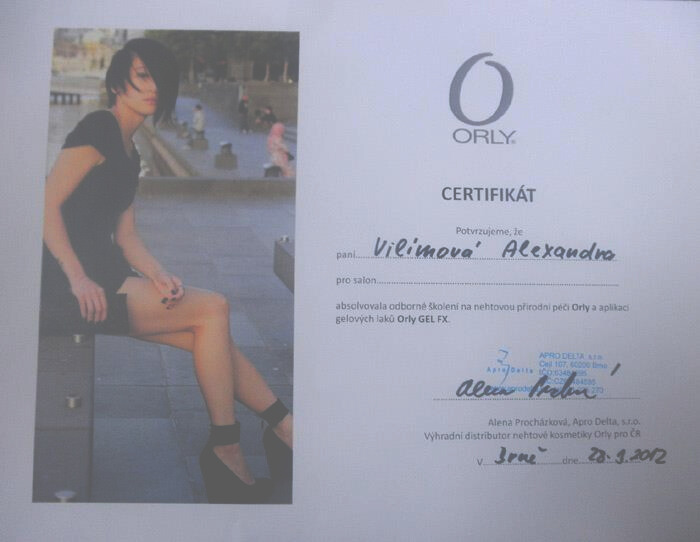 ORLY®
CERTIFIKÁT
Potvrzujeme, že
paní Vilímová Alexandra
pro salon
absolvovala odborné školení na nehtovou přírodní péči Orly a aplikaci
gelových laků Orly GEL FX.
Apro Delta
APRO DELTA s.r.o.
Cejl 107, 60200 Brno
Alena Procházková, Apro Delta, s.r.o.
Výhradní distributor nehtové kosmetiky Orly pro ČR
V Brně dne 28.9.2012